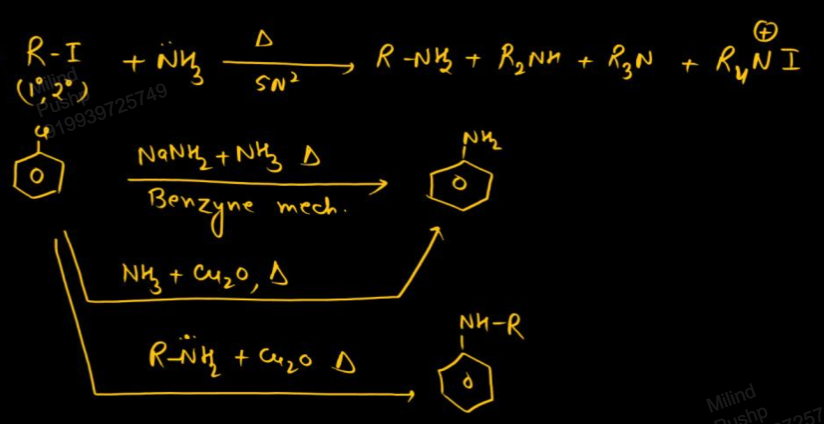 R-I + N̈H₃ Δ SN² R-NH₂ + R₂NH + R₃N + R₄N⊕ I
(1°, 2°)
Milind
Pushp
919939725749
Cl
NaNH₂ + NH₃ Δ
Benzyne mech.
NH₂
NH₃ + Cu₂O, Δ
R-N̈H₂ + Cu₂O Δ
NH-R
Milind
Pushp